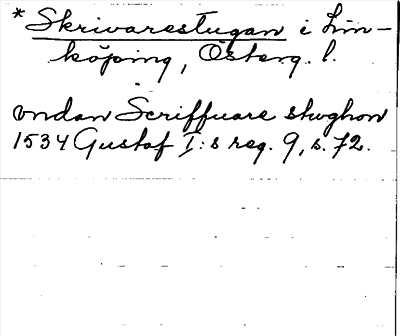 * Skrivarestugan i Lin-
köping, Österg. l.
vndan Scriffuare stwghon
1534 Gustaf I:s reg. 9, s. 72.